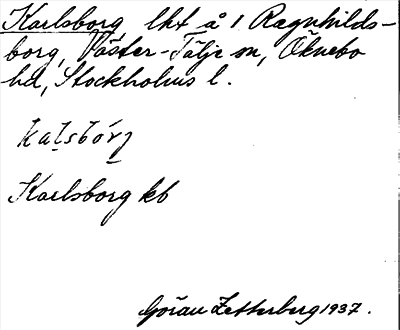 Karlsborg lht å 1 Ragnhilds-
borg, Väster-Tälje sn, Öknebo
hd, Stockholms l.
kalsbórj
Karlsborg kb
Göran Zetterberg 1937.